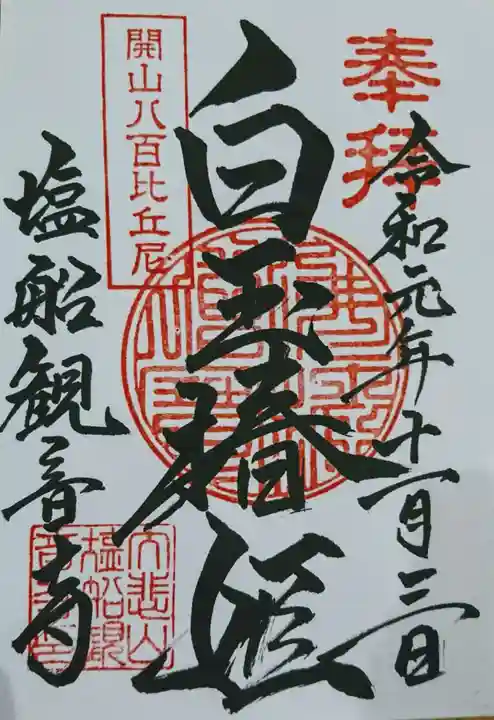 奉拝
令和元年十一月三日
白玉椿姫
開山八百比丘尼
塩船観音寺
大悲山
塩船観
音寺印